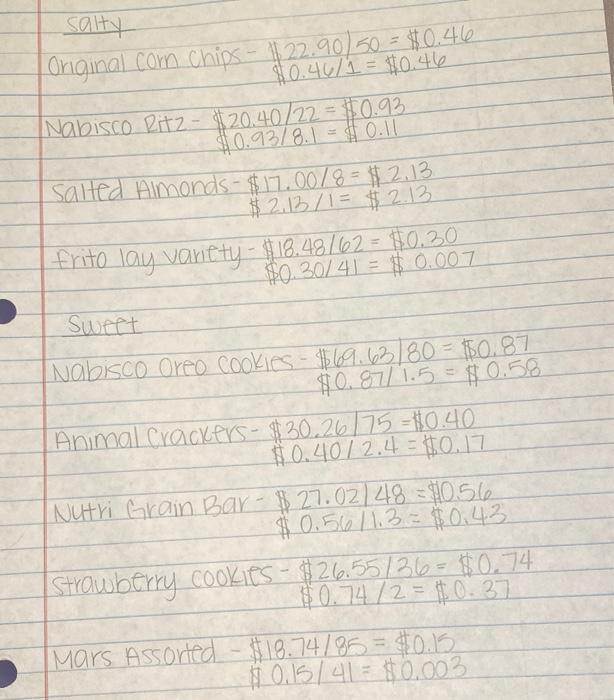 Salty
Original Corn Chips - $22.90/50 = $0.46
$0.46/1 = $0.46
Nabisco Ritz - $20.40/22 = $0.93
$0.93/8.1 = $0.11
Salted Almonds - $17.00/8 = $2.13
$2.13/1 = $2.13
frito lay variety - $18.48/62 = $0.30
$0.30/41 = $0.007
Sweet
Nabisco Oreo Cookies - $69.63/80 = $0.87
$0.87/1.5 = $0.58
Animal Crackers - $30.26/75 = $0.40
$0.40/2.4 = $0.17
Nutri Grain Bar - $27.02/48 = $0.56
$0.56/1.3 = $0.43
Strawberry cookies - $26.55/36 = $0.74
$0.74/2 = $0.37
Mars Assorted - $18.74/85 = $0.15
$0.15/41 = $0.003